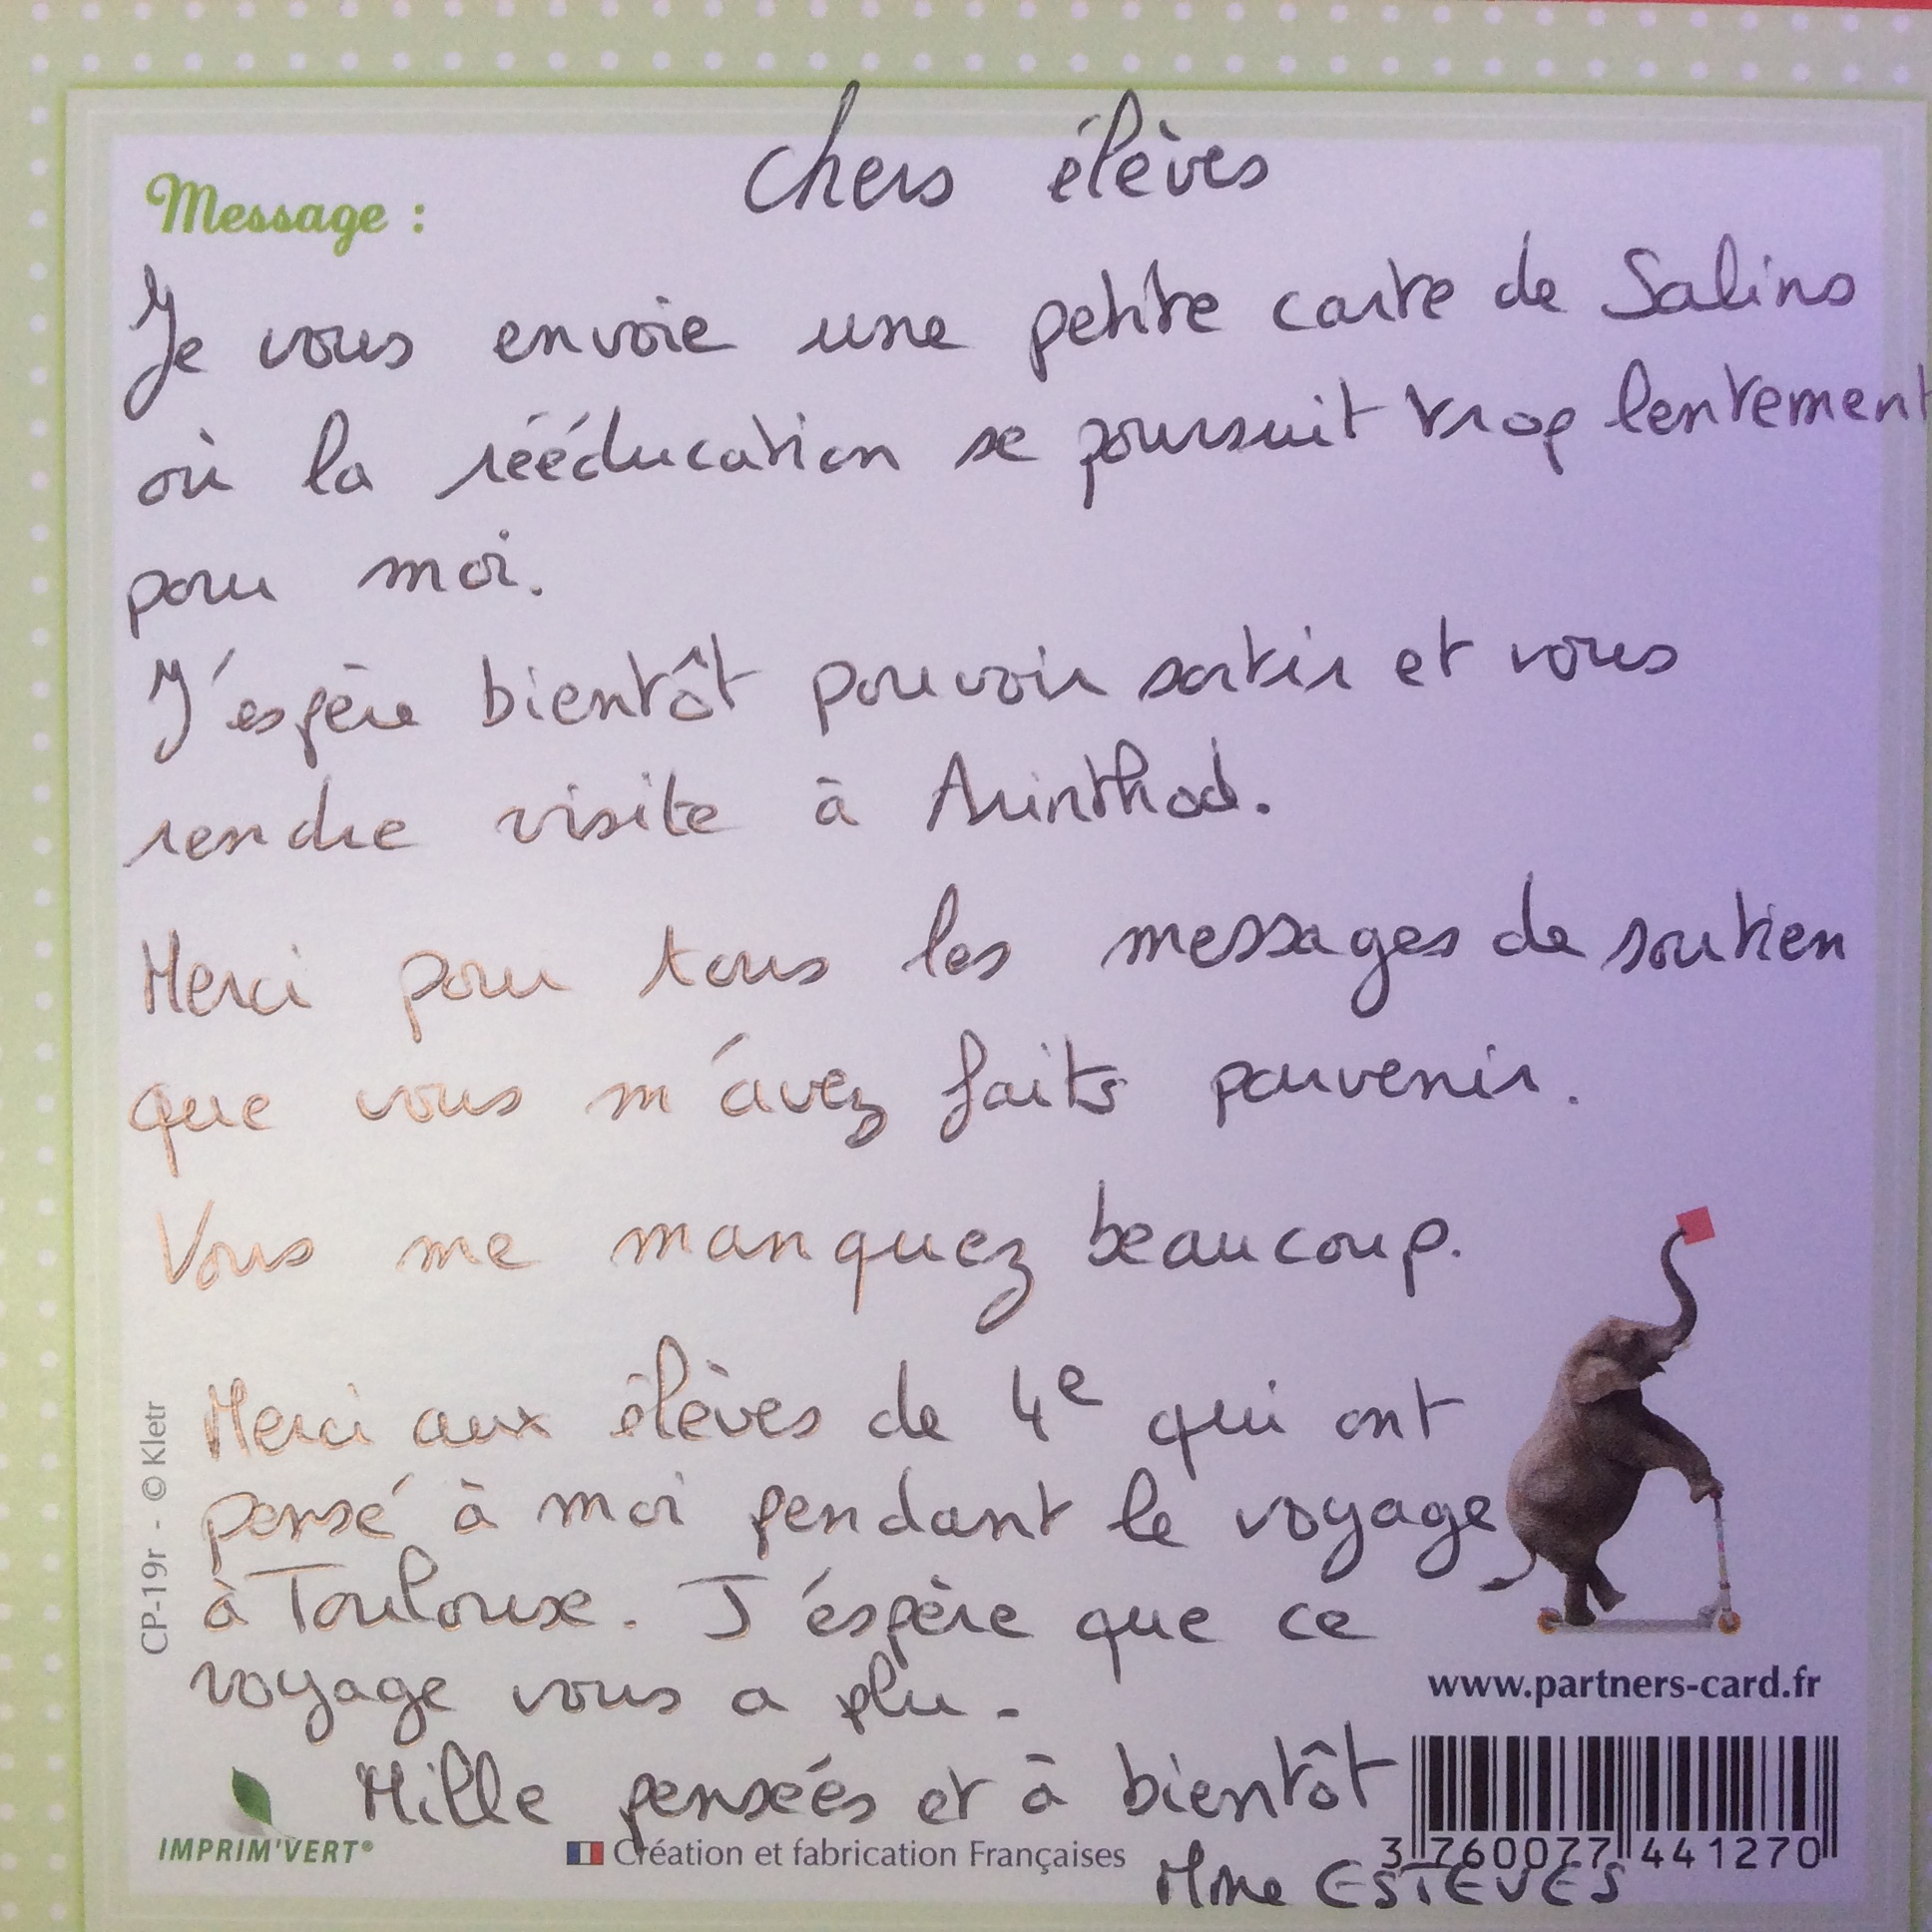 Chers élèves
Message :
Je vous envoie une petite carte de Salins
où la rééducation se poursuit trop lentement
pour moi.
J'éspère bientôt pouvoir sortir et vous
rendre visite à Arinthod.
Merci pour tous les messages de soutien
que vous m'avez faits parvenir.
Vous me manquez beaucoup.
Merci aux élèves de 4e qui ont
pensé à moi pendant le voyage
à Toulouse. J'éspère que ce
voyage vous a plu.
Mille pensées et à bientôt
Mme ESTEVES
CP-19r - © Kletr
www.partners-card.fr
IMPRIM'VERT®
Création et fabrication Françaises
3 760077 441270